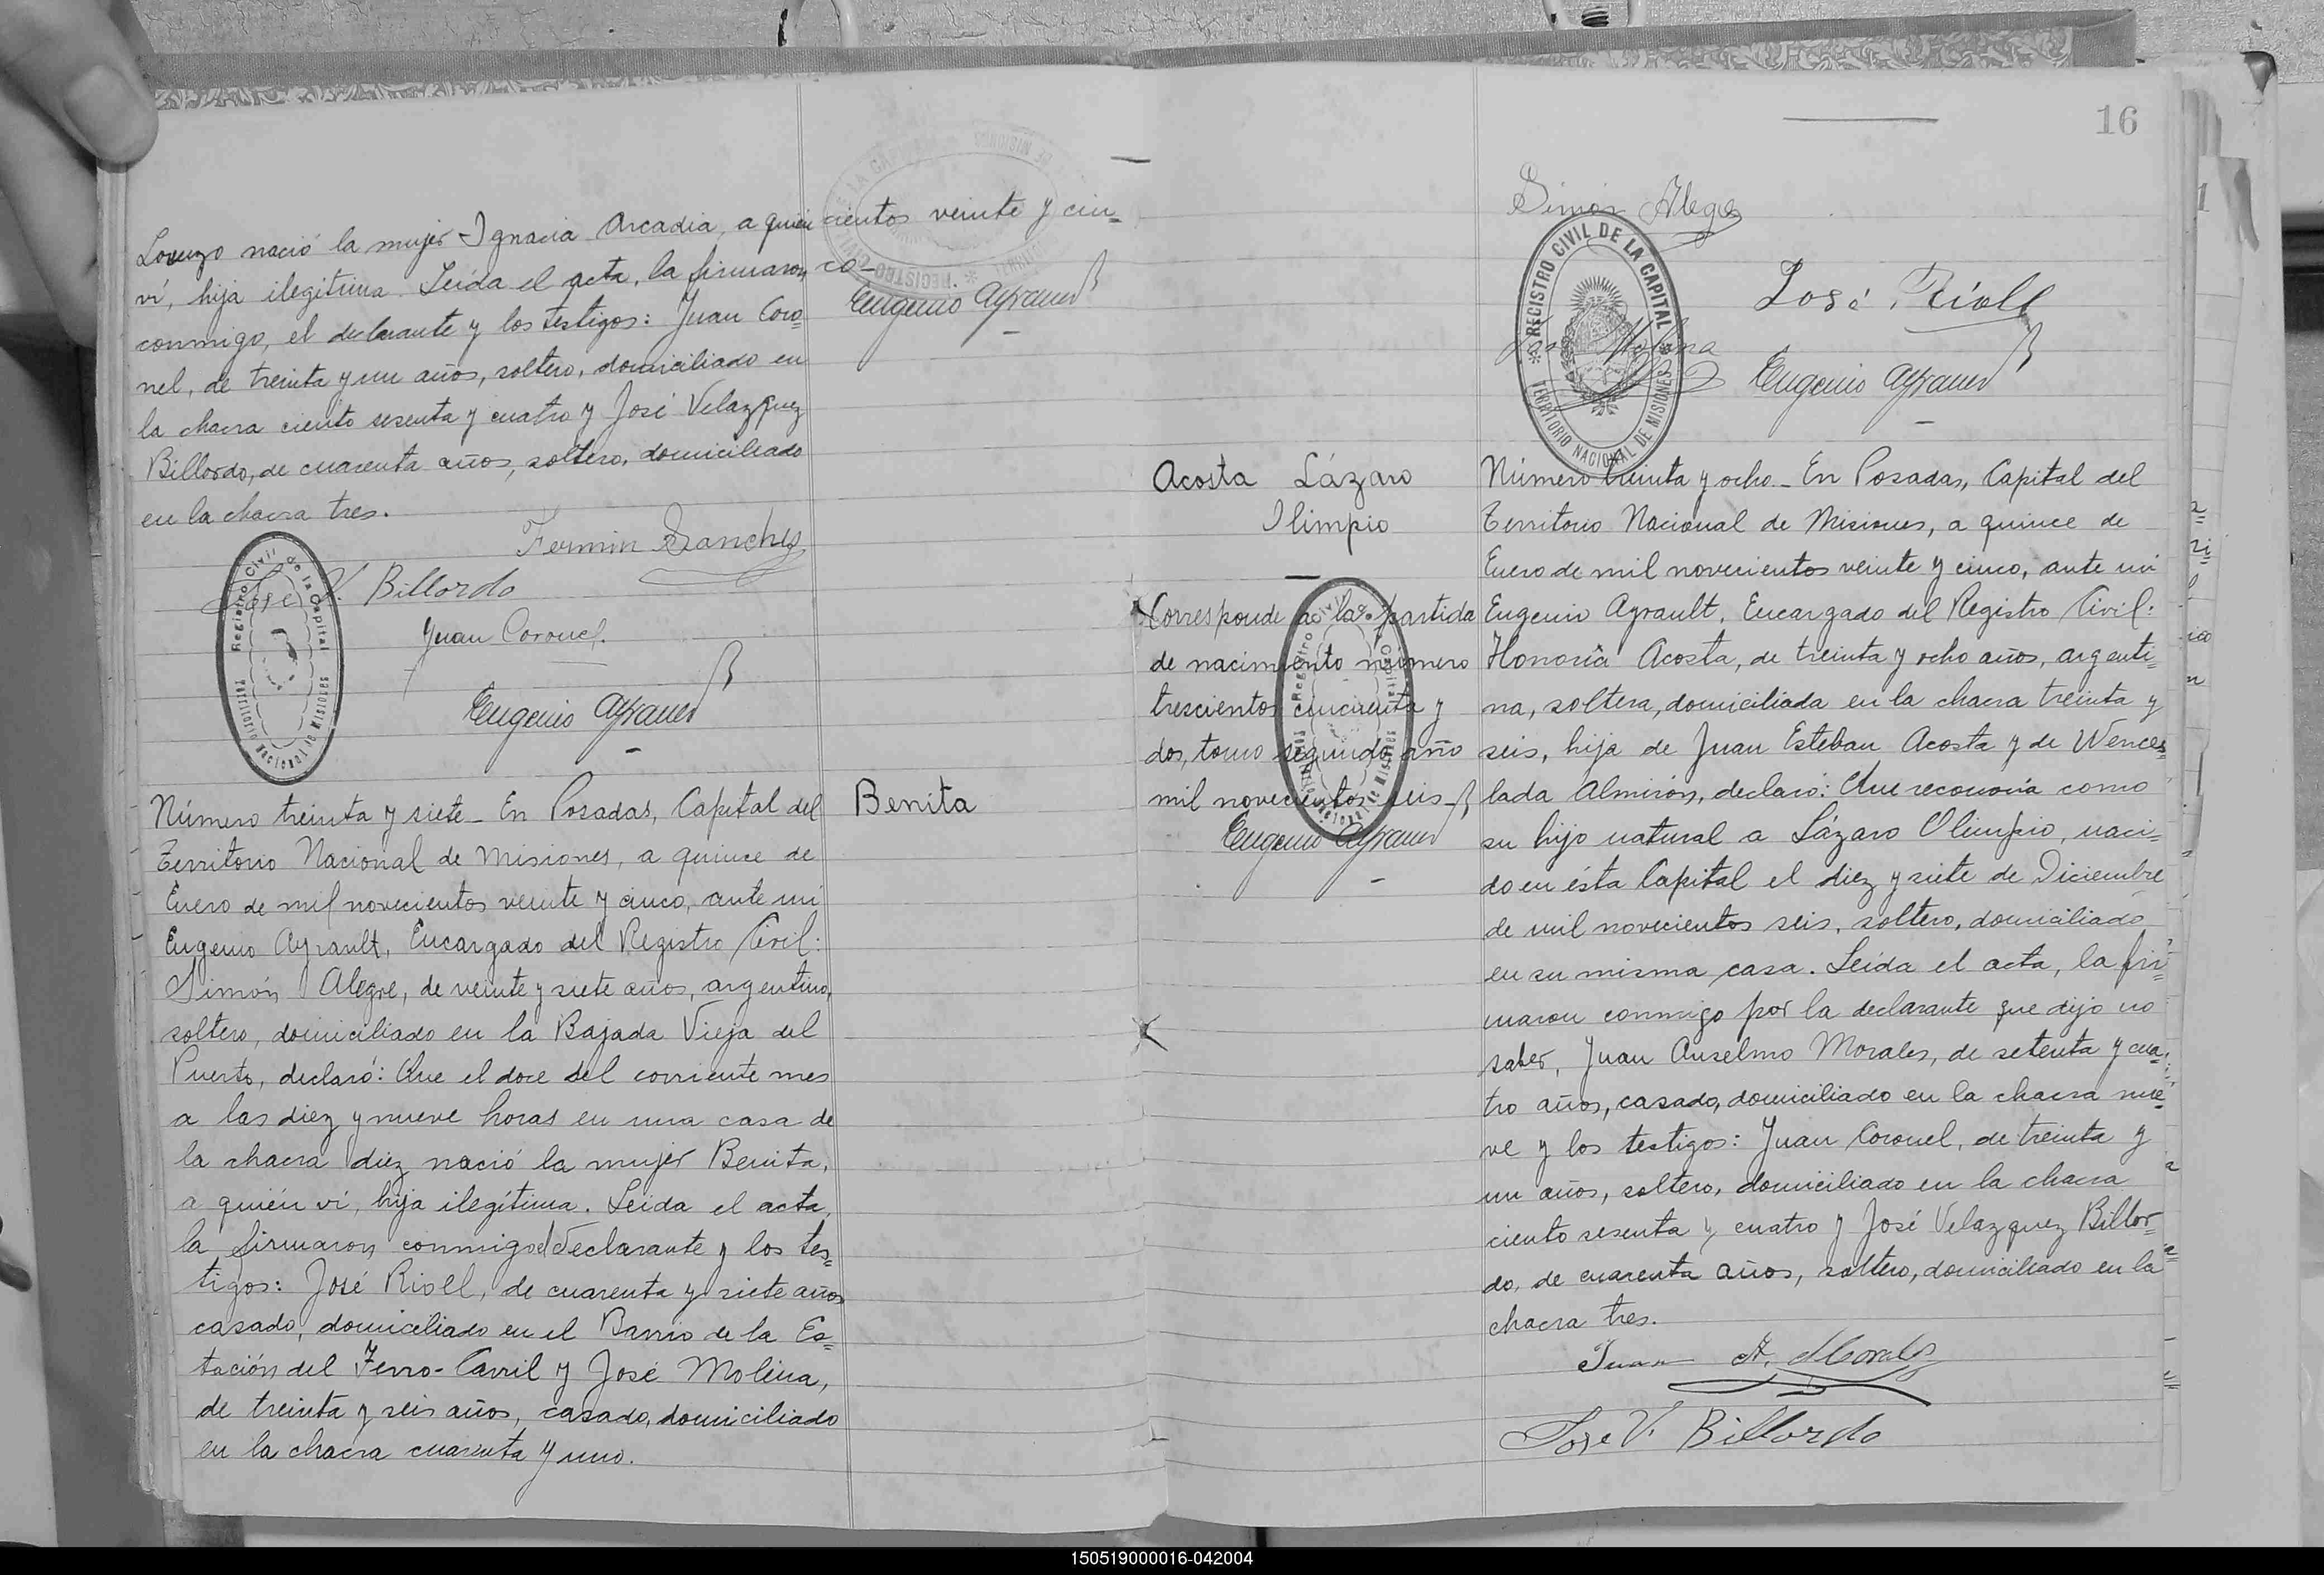 Lorenzo nació la mujer Ignacia Arcadia, a quien
ví, hija ilegitima. Leída el acta, la firmaron
conmigo, el declarante y los testigos: Juan Coro=
nel, de treinta y un años, soltero, domiciliado en
la chacra ciento sesenta y cuatro y José Velazquez
Billordo, de cuarenta años, soltero, domiciliado
en la chacra tres.
Fermin Sanchez
José V. Billordo
Juan Coronel.
Eugenio Ayrault
Registro Civil de la Capital
Territorio Nacional de Misiones
cientos veinte y cin=
co_
Eugenio Ayrault
Número treinta y siete_ En Posadas, Capital del
Territorio Nacional de Misiones, a quince de
Enero de mil novecientos veinte y cinco, ante mi
Eugenio Ayrault, Encargado del Registro Civil:
Simón Alegre, de veinte y siete años, argentino,
soltero, domiciliado en la Bajada Vieja del
Puerto, declaró: Que el doce del corriente mes
a las diez y nueve horas en una casa de
la chacra diez nació la mujer Benita,
a quién ví, hija ilegítima. Leida el acta,
la firmaron conmigo el declarante y los tes=
tigos: José Rioll, de cuarenta y siete años
casado, domiciliado en el Barrio de la Es=
tación del Ferro-Carril y José Molina,
de treinta y seis años, casado, domiciliado
en la chacra cuarenta y uno.
Benita
16
Simón Alegre
José Rioll
José Molina
Eugenio Ayrault
REGISTRO CIVIL DE LA CAPITAL
TERRITORIO NACIONAL DE MISIONES
Acosta Lázaro
Ilimpio
Corresponde a la partida
de nacimiento número
trescientos cincuenta y
dos, tomo segundo año
mil novecientos seis_
Eugenio Ayrault
Número treinta y ocho_ En Posadas, Capital del
Territorio Nacional de Misiones, a quince de
Enero de mil novecientos veinte y cinco, ante mi
Eugenio Ayrault, Encargado del Registro Civil:
Honoria Acosta, de treinta y ocho años, argenti=
na, soltera, domiciliada en la chacra treinta y
seis, hija de Juan Esteban Acosta y de Wences=
lada Almirón, declaró: Que reconocía como
su hijo natural a Lázaro Olimpio, naci=
do en ésta Capital el diez y siete de Diciembre
de mil novecientos seis, soltero, domiciliado
en su misma casa. Leída el acta, la fir=
maron conmigo por la declarante que dijo no
saber, Juan Anselmo Morales, de setenta y cua=
tro años, casado, domiciliado en la chacra nue=
ve y los testigos: Juan Coronel, de treinta y
un años, soltero, domiciliado en la chacra
ciento sesenta y cuatro y José Velazquez Billor=
do, de cuarenta años, soltero, domiciliado en la
chacra tres.
Juan A. Morales
José V. Billordo
150519000016-042004